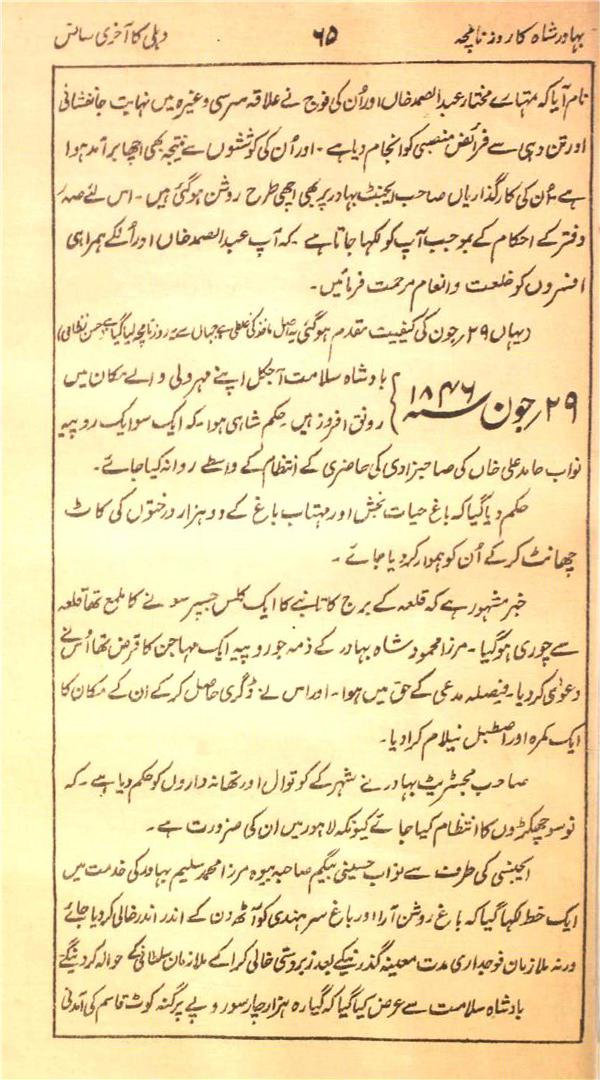 بہادر شاہ کا روزنامچہ ۶۵ دہلی کا آخری سانس
نام آیا کہ تمہارے مختار عبدالصمد خاں اور اُن کی فوج نے علاقہ سرسی وغیرہ میں نہایت جانفشانی
اور تن دہی سے فرائض منصبی کو انجام دیا ہے۔ اور اُن کی کوششوں سے نتیجہ بھی اچھا برآمد ہوا
ہے۔ اُن کی کارگذاریاں صاحب ایجنٹ بہادر پر بھی اچھی طرح روشن ہو گئی ہیں۔ اس لئے صدر
دفتر کے احکام کے بموجب آپ کو لکھا جاتا ہے۔ کہ آپ عبدالصمد خاں اور اُنکے ہمراہی
افسروں کو خلعت و انعام مرحمت فرمائیں۔
(یہاں ۲۹ جون کی کیفیت مقدم ہو گئی یہ اصل ماخذ کی غلطی ہے جہاں سے یہ روزنامچہ لیا گیا ہے حسن نظامی)
۲۹ جون ۱۸۴۶ء } بادشاہ سلامت آجکل اپنے مہرولی والے مکان میں
رونق افروز ہیں۔ حکم شاہی ہوا۔ کہ ایک سو ایک روپیہ
نواب حامد علی خاں کی صاحبزادی کی حاضری کے انتظام کے واسطے روانہ کیا جائے۔
حکم دیا گیا کہ باغ حیات بخش اور مہتاب باغ کے دو ہزار درختوں کی کاٹ
چھانٹ کر کے اُن کو ہموار کر دیا جائے۔
خبر مشہور ہے کہ قلعہ کے برج کا تانبے کا ایک کلس جسپر سونے کا ملمع تھا قلعہ
سے چوری ہو گیا۔ مرزا محمود شاہ بہادر کے ذمہ جو روپیہ ایک مہاجن کا قرض تھا اُس نے
دعویٰ کر دیا۔ فیصلہ مدعی کے حق میں ہوا۔ اور اس نے ڈگری حاصل کر کے ان کے مکان کا
ایک کمرہ اور اصطبل نیلام کرا دیا۔
صاحب مجسٹریٹ بہادر نے شہر کے کوتوال اور تھانہ داروں کو حکم دیا ہے۔ کہ
نو سو چھکڑوں کا انتظام کیا جائے کیونکہ لاہور میں ان کی ضرورت ہے۔
ایجنسی کی طرف سے نواب حسینی بیگم صاحبہ بیوہ مرزا محمد سلیم بہادر کی خدمت میں
ایک خط لکھا گیا کہ باغ روشن آرا اور باغ سرہندی کو آٹھ دن کے اندر اندر خالی کر دیا جائے
ورنہ ملازمان فوجداری مدت معینہ گذرنیکے بعد زبردستی خالی کرا کے ملازمان سلطانی کے حوالہ کر دینگے
بادشاہ سلامت سے عرض کیا گیا کہ گیارہ ہزار چار سو روپے پرگنہ کوٹ قاسم کی آمدنی